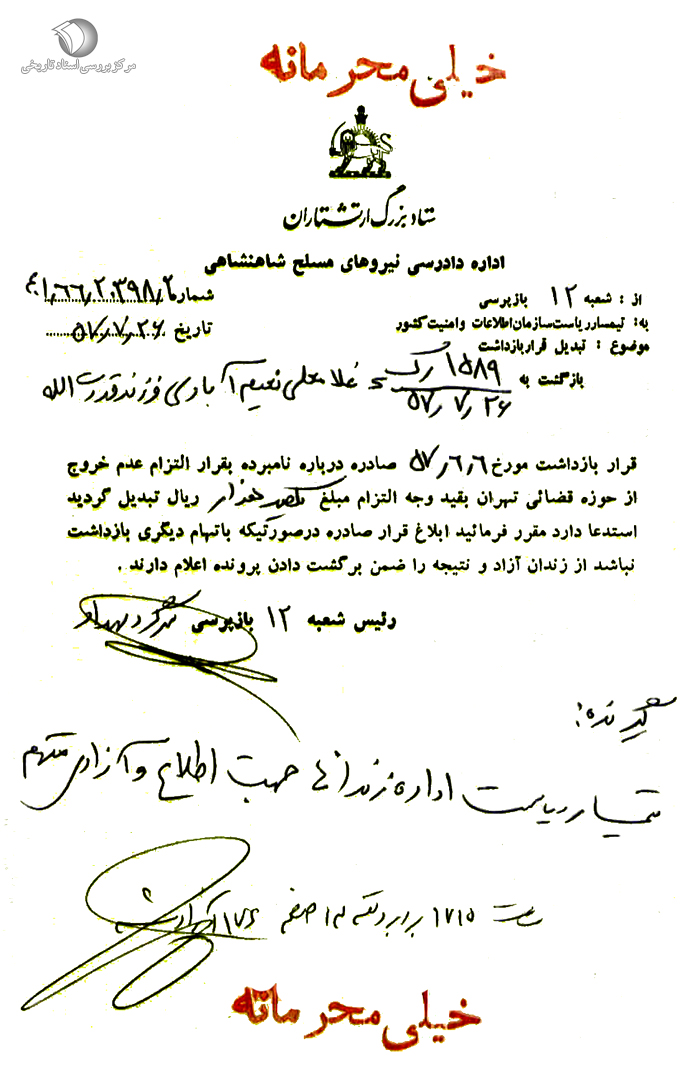 مرکز بررسی اسناد تاریخی
خیلی محرمانه
ستاد بزرگ ارتشتاران
اداره دادرسی نیروهای مسلح شاهنشاهی
از : شعبه ۱۲ بازپرسی
شماره
به: تیمسار ریاست سازمان اطلاعات و امنیت کشور
تاریخ ۵۷٫۷٫۲۶
موضوع : تبدیل قرار بازداشت
بازگشت به ۱۵۸۹ رک ۵۷٫۷٫۲۶ = غلامعلی نعیم آبادی فرزند قدرت الله
قرار بازداشت مورخ ۵۷٫۶٫۶ صادره درباره نامبرده بقرار التزام عدم خروج
از حوزه قضائی تهران بقید وجه التزام مبلغ یکصد هزار ریال تبدیل گردید
استدعا دارد مقرر فرمائید ابلاغ قرار صادره درصورتیکه باتهام دیگری بازداشت
نباشد از زندان آزاد و نتیجه را ضمن برگشت دادن پرونده اعلام دارند .
رئیس شعبه ۱۲ بازپرسی سرگرد
گیرنده:
تیمسار ریاست اداره زندانها جهت اطلاع و آزادی متهم
ساعت ۱۷۱۵
خیلی محرمانه